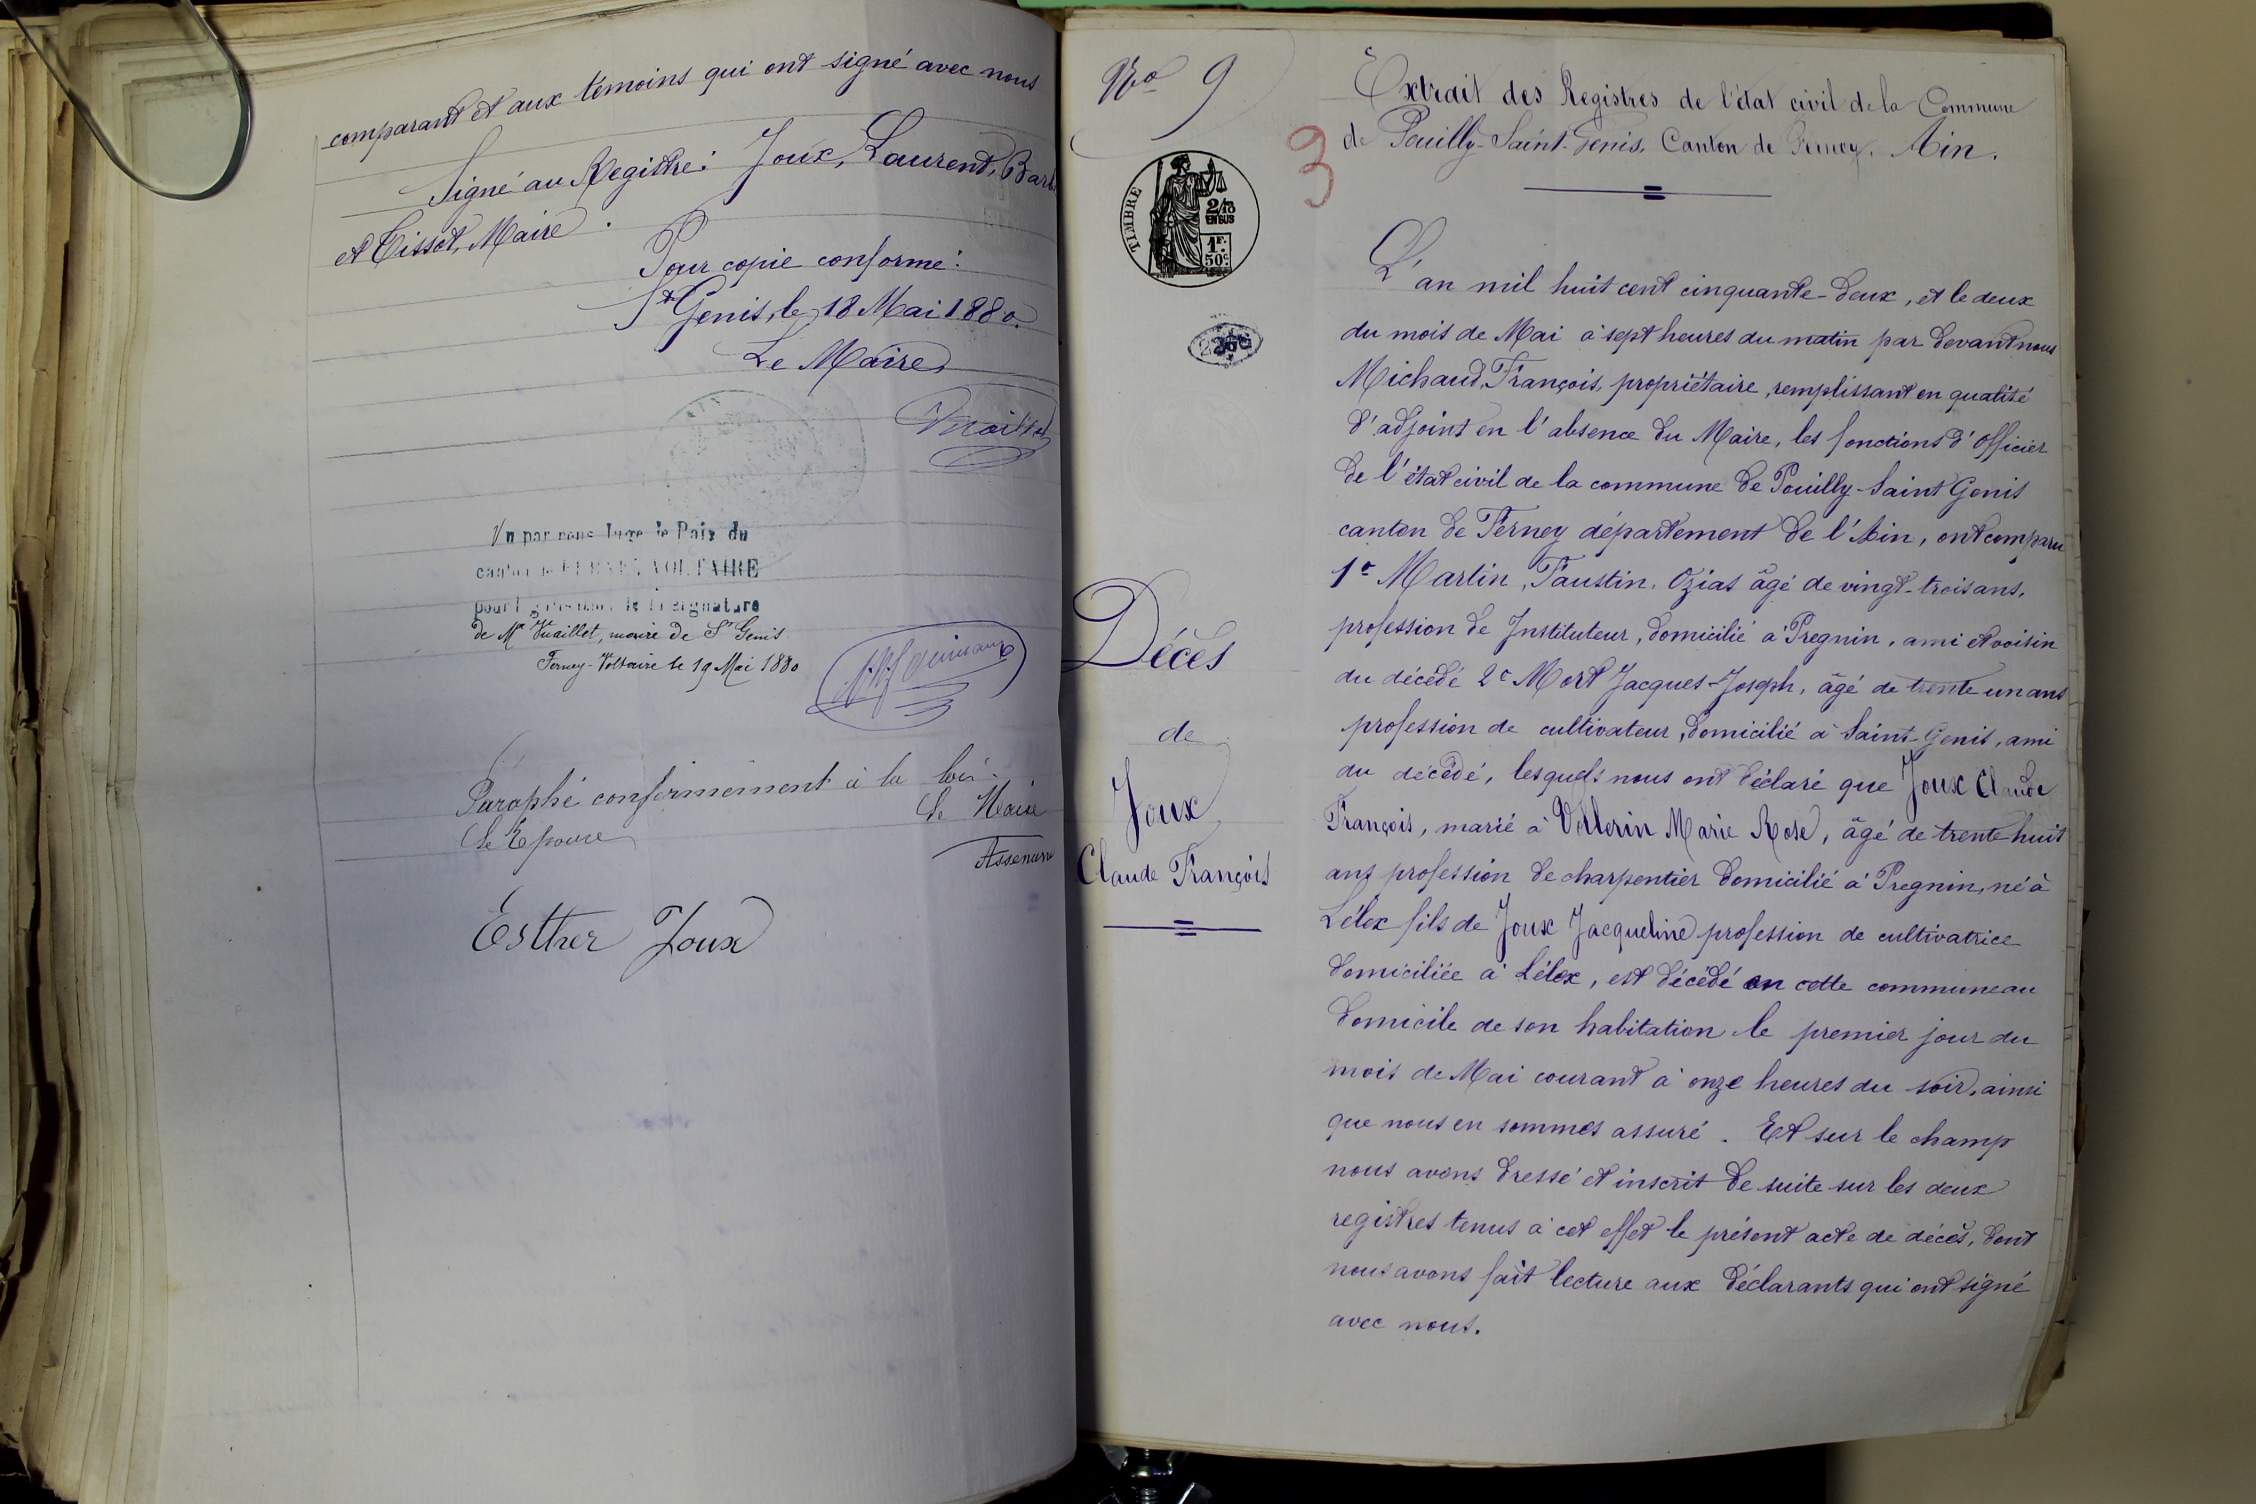 comparant et aux témoins qui ont signé avec nous
Signé au Registre: Joux, Laurent,
et Tissot, Maire.
Pour copie conforme:
St Genis, le 18 Mai 1880.
Le Maire
Vu par nous Juge de Paix du
canton de FERNEY-VOLTAIRE
pour la signature
de Mr Vuaillet, maire de St Genis
Ferney-Voltaire le 19 Mai 1880
Paraphé conformément à la loi.
Le Maire
Epouse
Assenum
Esther Joux
No 9
TIMBRE
2/10
EN SUS
1F.
50c.
Décès
de
Joux
Claude François
3
Extrait des Registres de l'état civil de la Commune
de Pouilly-Saint-Genis, Canton de Ferney. Ain.
L'an mil huit cent cinquante-deux, et le deux
du mois de Mai à sept heures du matin par devant nous
Michaud, François, propriétaire, remplissant en qualité
d'adjoint en l'absence du Maire, les fonctions d'officier
de l'état civil de la commune de Pouilly-Saint Genis
canton de Ferney département de l'Ain, ont comparu
1e Martin, Faustin, Ozias âgé de vingt-trois ans,
profession de Instituteur, domicilié à Pregnin, ami et voisin
du décédé 2e Mort Jacques-Joseph, âgé de trente un ans
profession de cultivateur, domicilié à Saint-Genis, ami
du décédé, lesquels nous ont déclaré que Joux Claude
François, marié à Vollerin Marie Rose, âgé de trente huit
ans profession de charpentier domicilié à Pregnin, né à
Lélex fils de Joux Jacqueline profession de cultivatrice
domiciliée à Lélex, est décédé en cette commune au
domicile de son habitation le premier jour du
mois de Mai courant à onze heures du soir, ainsi
que nous en sommes assuré. Et sur le champ
nous avons dressé et inscrit de suite sur les deux
registres tenus à cet effet le présent acte de décès, dont
nous avons fait lecture aux déclarants qui ont signé
avec nous.